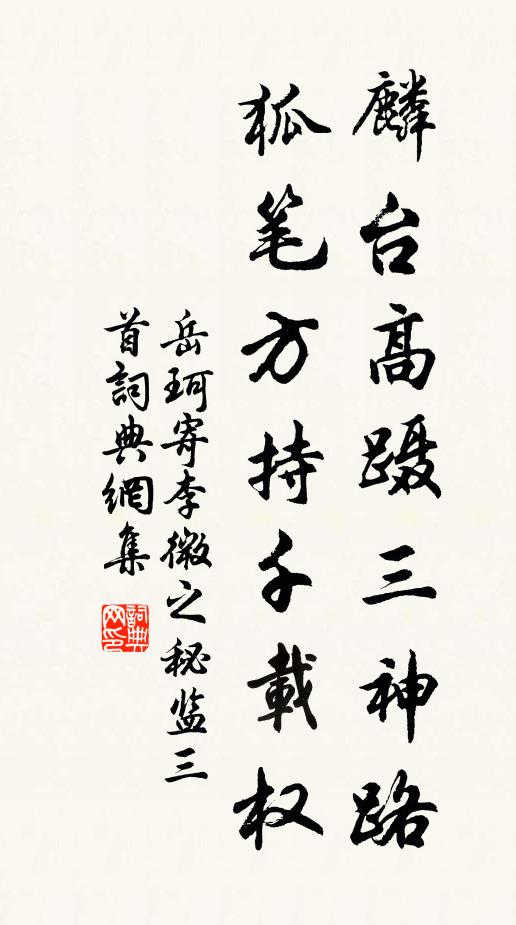 麟台高蹑三神路
狐笔方持千載权
岳珂寄李微之秘监三
首詞典網集
詞典网印